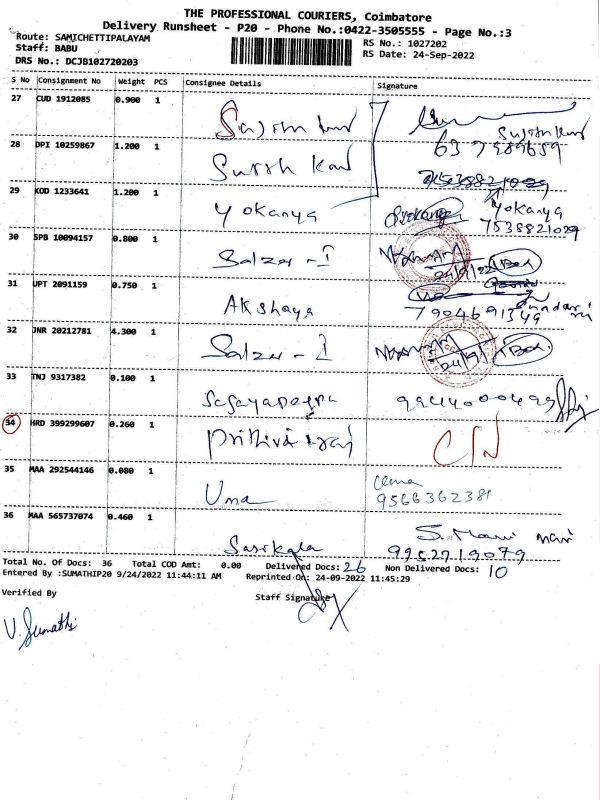 THE PROFESSIONAL COURIERS, Coimbatore
Delivery Runsheet - P20 - Phone No.:0422-3505555 - Page No.:3
Route: SAMICHETTIPALAYAM
RS No.: 1027202
Staff: BABU
RS Date: 24-Sep-2022
DRS No.: DCJB102720203
S No Consignment No Weight PCS Consignee Details Signature
27 CUD 1912085 0.900 1
28 DPI 10259867 1.200 1 Suresh
29 KOD 1233641 1.200 1 Yokanya Yokanya
7538821029
30 SPB 10094157 0.800 1 Salzer - I
31 UPT 2091159 0.750 1 Akshaya
32 JNR 20212781 4.300 1 Salzer - I
33 TNJ 9317382 0.100 1
34 HRD 399299607 0.260 1 Prithivi raj
35 MAA 292544146 0.080 1 Uma Uma
9566362381
36 MAA 565737074 0.460 1 Sasikala S. Mani
9952719079
Total No. Of Docs: 36 Total COD Amt: 0.00 Delivered Docs: 26 Non Delivered Docs: 10
Entered By :SUMATHIP20 9/24/2022 11:44:11 AM Reprinted On: 24-09-2022 11:45:29
Verified By Staff Signature
V. Sumathi